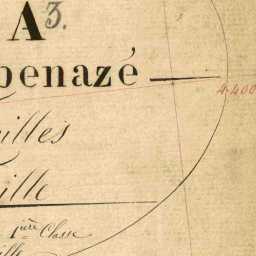 A 3.
penazé
4.400
illes
ille
1ère Classe
ille